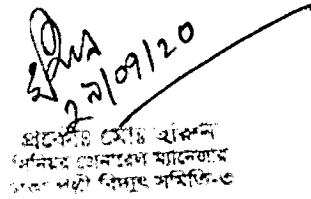 ২৯/০৭/২০
প্রকৌঃ মোঃ হারুন
সিনিয়র জেনারেল ম্যানেজার
ঢাকা পল্লী বিদ্যুৎ সমিতি-৩